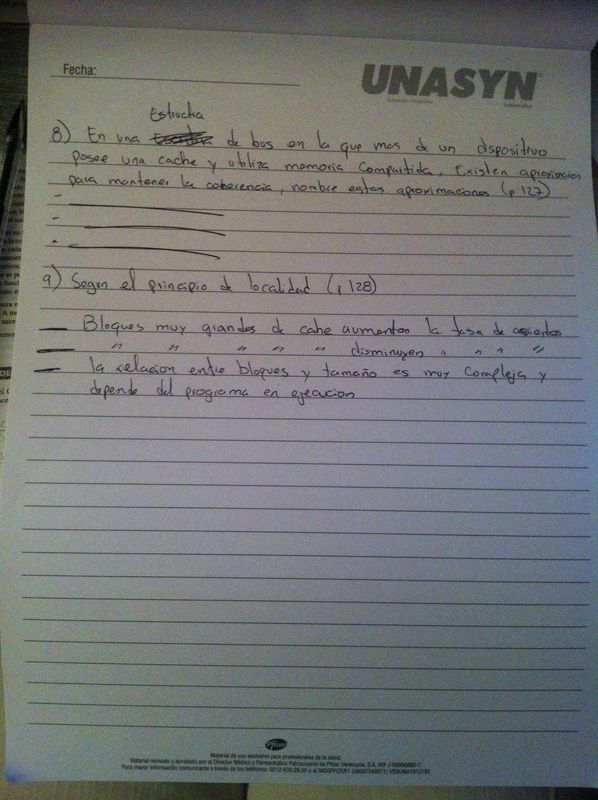 Fecha:
UNASYN
Estructra
8) En una de bus en la que mas de un dispositivo
posee una cache y utiliza memoria compartida, Existen aproximacion
para mantener la coherencia, nombre estas aproximaciones (p 127)
-
-
-
9) Segun el principio de localidad (p 128)
— Bloques muy grandes de cahe aumentan la tasa de aciertos
— " " " " " disminuyen " " " "
— la relacion entre bloques y tamaño es muy compleja y
depende del programa en ejecucion
Pfizer
Material de uso exclusivo para profesionales de la salud.
Material revisado y aprobado por el Director Médico y Farmacéutico Farmaceuta de Pfizer Venezuela, S.A. RIF J-00006890-7
Para mayor información comunicarse a través de los teléfonos: 0212-630.29.00 o al 0800PFIZER1